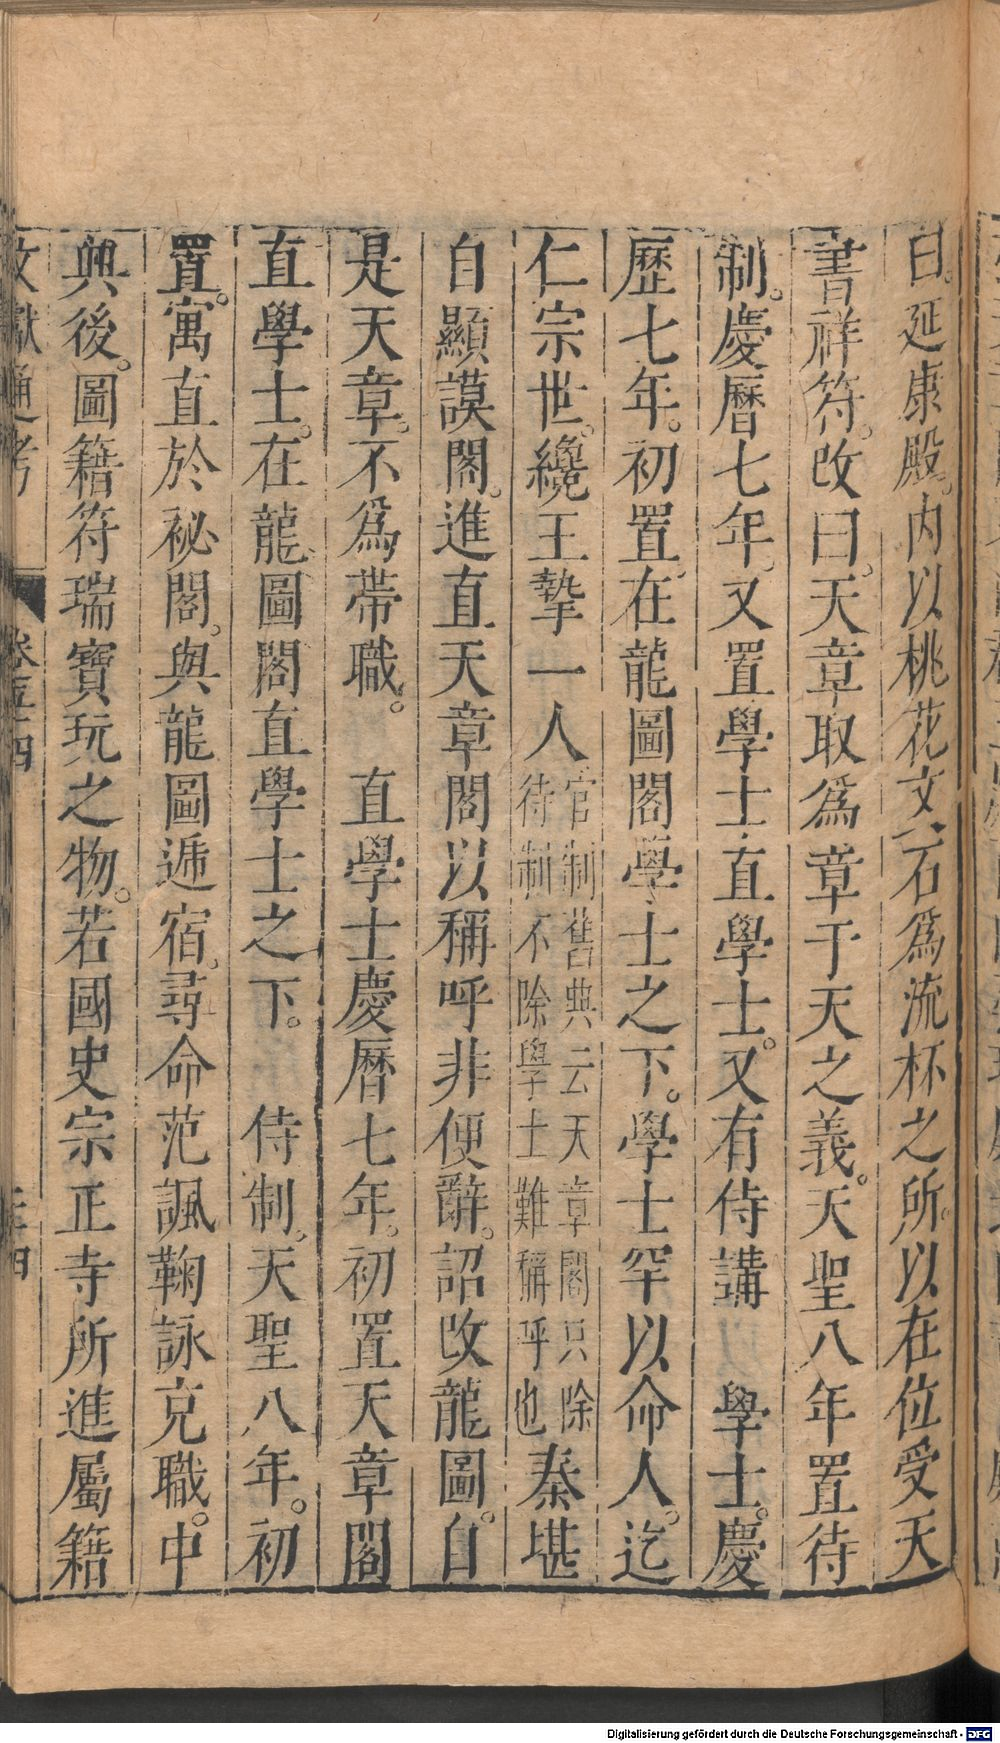 曰。延康殿。内以桃花文石爲流杯之所。以在位受天
書祥符。改曰。天章取爲章于天之義。天聖八年置待
制。慶曆七年。又置學士直學士。又有侍講　學士。慶
歷七年。初置。在龍圖閣學士之下。學士罕以命人。迄
仁宗世。纔王摯一人官制舊典云天章閣只除待制不除學士難稱呼也秦堪
自顯謨閣。進直天章閣以稱呼非便辭。詔改龍圖。自
是天章。不爲帶職。　直學士慶曆七年。初置天章閣
直學士。在龍圖閣直學士之下。　侍制。天聖八年。初
置。寓直於祕閣。與龍圖遞宿。尋命范諷鞠詠克職。中
興後。圖籍符瑞寶玩之物。若國史宗正寺所進屬籍
文獻通考　卷五十四　三十四
Digitalisierung gefördert durch die Deutsche Forschungsgemeinschaft - DFG